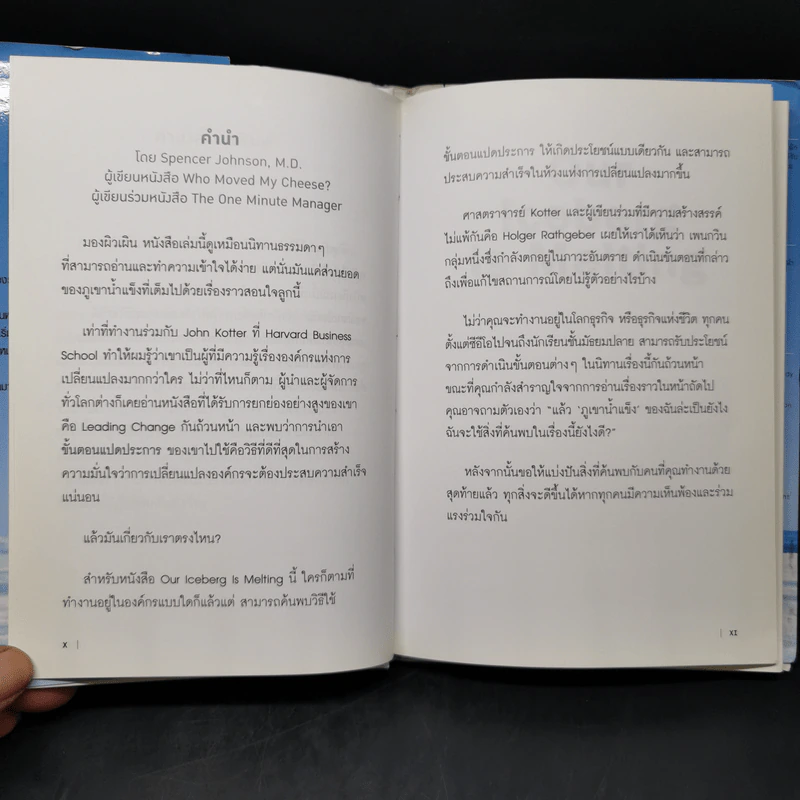 คำนำ
โดย Spencer Johnson, M.D.
ผู้เขียนหนังสือ Who Moved My Cheese?
ผู้เขียนร่วมหนังสือ The One Minute Manager
มองผิวเผิน หนังสือเล่มนี้ดูเหมือนนิทานธรรมดาๆ
ที่สามารถอ่านและทำความเข้าใจได้ง่าย แต่นั่นมันแค่ส่วนยอด
ของภูเขาน้ำแข็งที่เต็มไปด้วยเรื่องราวสอนใจลูกนี้
เท่าที่ทำงานร่วมกับ John Kotter ที่ Harvard Business
School ทำให้ผมรู้ว่าเขาเป็นผู้ที่มีความรู้เรื่ององค์กรแห่งการ
เปลี่ยนแปลงมากกว่าใคร ไม่ว่าที่ไหนก็ตาม ผู้นำและผู้จัดการ
ทั่วโลกต่างก็เคยอ่านหนังสือที่ได้รับการยกย่องอย่างสูงของเขา
คือ Leading Change กันถ้วนหน้า และพบว่าการนำเอา
ขั้นตอนแปดประการ ของเขาไปใช้คือวิธีที่ดีที่สุดในการสร้าง
ความมั่นใจว่าการเปลี่ยนแปลงองค์กรจะต้องประสบความสำเร็จ
แน่นอน
แล้วมันเกี่ยวกับเราตรงไหน?
สำหรับหนังสือ Our Iceberg Is Melting นี้ ใครก็ตามที่
ทำงานอยู่ในองค์กรแบบใดก็แล้วแต่ สามารถค้นพบวิธีใช้
X |
ขั้นตอนแปดประการ ให้เกิดประโยชน์แบบเดียวกัน และสามารถ
ประสบความสำเร็จในห้วงแห่งการเปลี่ยนแปลงมากขึ้น
ศาสตราจารย์ Kotter และผู้เขียนร่วมที่มีความสร้างสรรค์
ไม่แพ้กันคือ Holger Rathgeber เผยให้เราได้เห็นว่า เพนกวิน
กลุ่มหนึ่งซึ่งกำลังตกอยู่ในภาวะอันตราย ดำเนินขั้นตอนที่กล่าว
ถึงเพื่อแก้ไขสถานการณ์โดยไม่รู้ตัวอย่างไรบ้าง
ไม่ว่าคุณจะทำงานอยู่ในโลกธุรกิจ หรือธุรกิจแห่งชีวิต ทุกคน
ตั้งแต่ซีอีโอไปจนถึงนักเรียนชั้นมัธยมปลาย สามารถรับประโยชน์
จากการดำเนินขั้นตอนต่างๆ ในนิทานเรื่องนี้กันถ้วนหน้า
ขณะที่คุณกำลังสำราญใจจากการอ่านเรื่องราวในหน้าถัดไป
คุณอาจถามตัวเองว่า “แล้ว ‘ภูเขาน้ำแข็ง’ ของฉันล่ะเป็นยังไง
ฉันจะใช้สิ่งที่ค้นพบในเรื่องนี้ยังไงดี?”
หลังจากนั้นขอให้แบ่งปันสิ่งที่ค้นพบกับคนที่คุณทำงานด้วย
สุดท้ายแล้ว ทุกสิ่งจะดีขึ้นได้หากทุกคนมีความเห็นพ้องและร่วม
แรงร่วมใจกัน
| XI